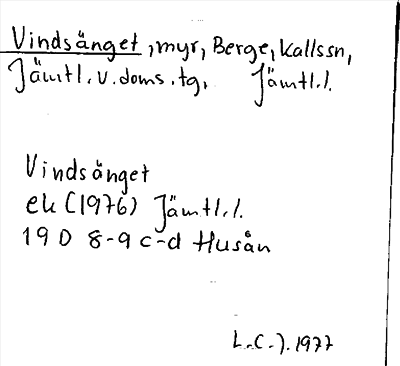 Vindsänget, myr, Berge, Kallssn,
Jämtl.v.doms.tg, Jämtl.l.
Vindsänget
ek (1976) Jämtl.l.
19 D 8-9 c-d Husån
L.-C.J. 1977